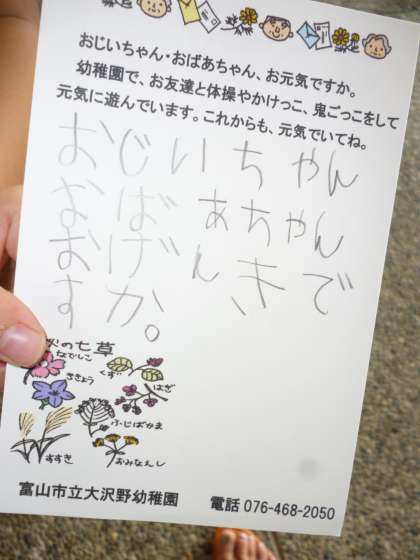 おじいちゃん・おばあちゃん、お元気ですか。
幼稚園で、お友達と体操やかけっこ、鬼ごっこをして
元気に遊んでいます。これからも、元気でいてね。
おじいちゃん
おばあちゃん
おげんきで
すか。
秋の七草
なでしこ
くず
ききょう
はぎ
ふじばかま
すすき
おみなえし
富山市立大沢野幼稚園 電話 076-468-2050